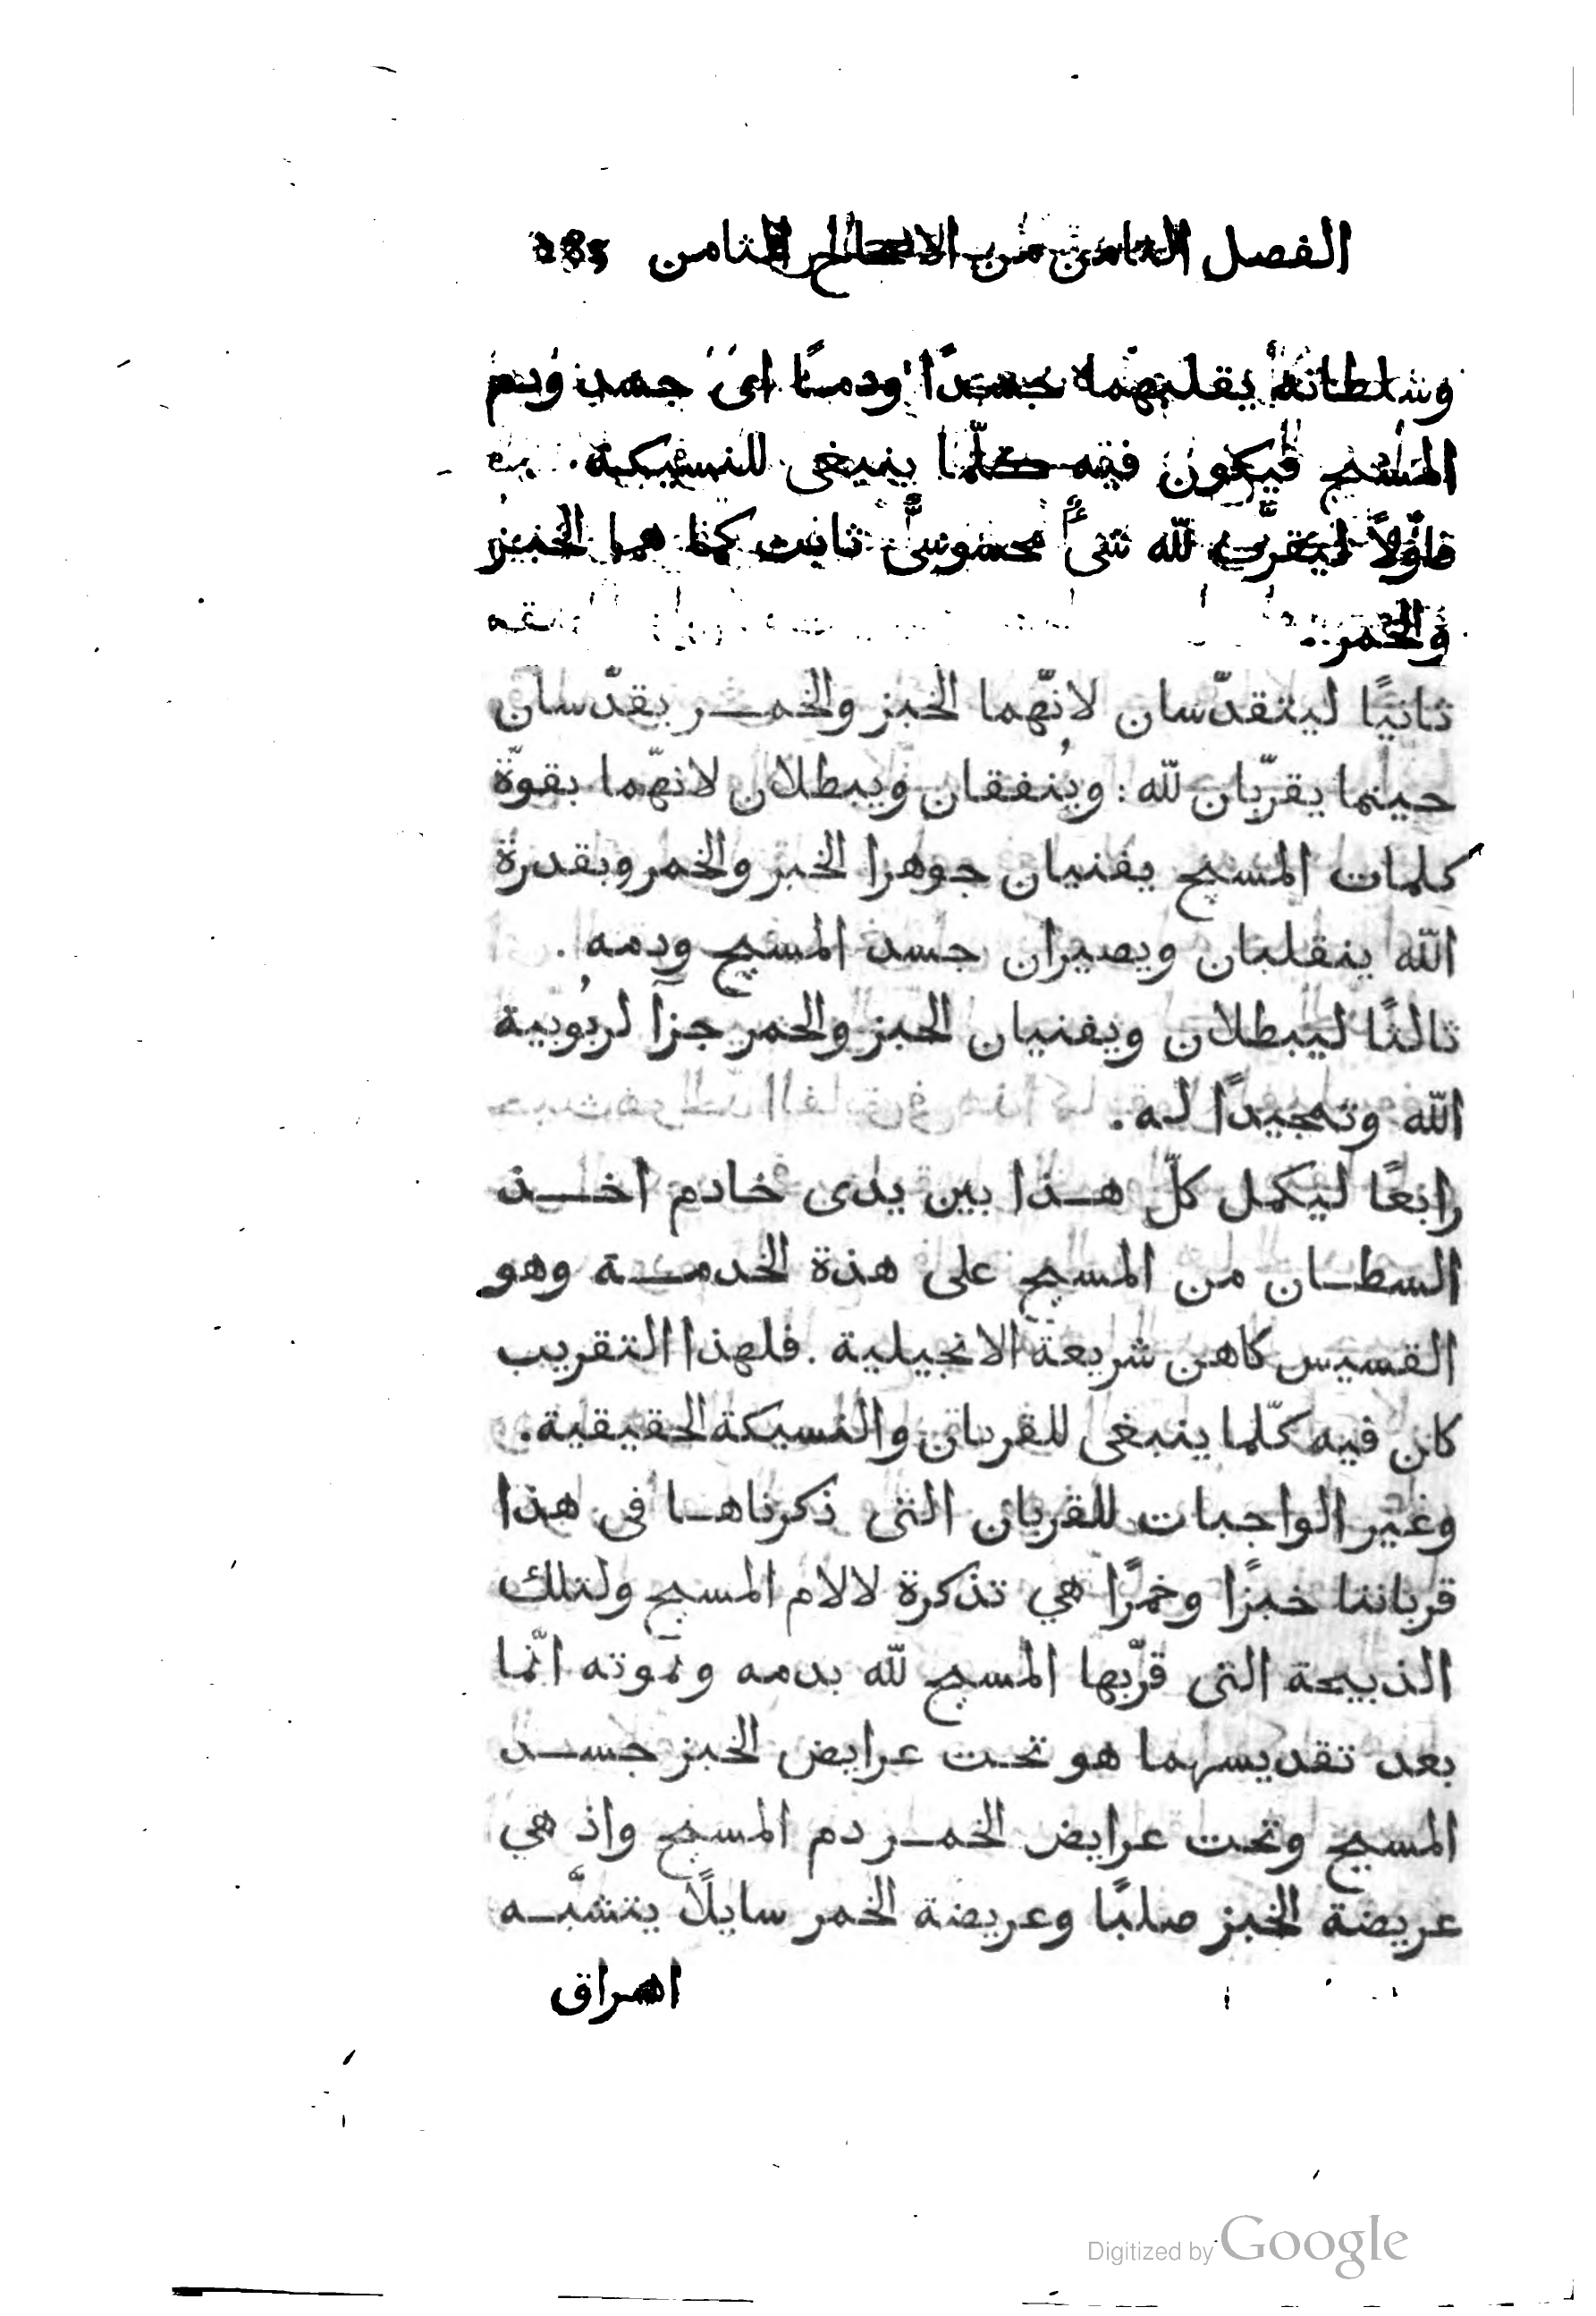 الفصل الثامن من الاصحاح الثامن 285
وسلطانه يقلبهما جسدًا ودمًا اى جسد ودم
المسيح فيكون فيه كلّما ينبغى للنسيكة.
فاوّلاً ليتقرّب للّه شىٌ محسوسىٌّ ثابت كما هما الخبز
والخمر.
ثانيًا ليتقدّسان لانّهما الخبز والخمـر يقدّسان
حينما يقرّبان للّه : وينفقان ويبطلان لانّهما بقوّة
كلمات المسيح يفنيان جوهرا الخبز والخمر وبقدرة
اللّه ينقلبان ويصيران جسد المسيح ودمه .
ثالثًا ليبطلان ويفنيان الخبز والخمر جزآ لربوبية
اللّه وتمجيدًا لـه .
رابعًا ليكمل كلّ هـذا بين يدى خادم اخـذ
السطـان من المسيح على هذة الخدمـة وهو
القسيس كاهن شريعة الانجيلية . فلهذا التقريب
كان فيه كلّما ينبغى للقربان والنسيكة الحقيقية .
وغير الواجبات للقربان التى ذكرناهـا فى هذا
قرباننا خبزًا وخمرًا هي تذكرة لالام المسيح ولتلك
الذبيحة التى قرّبها المسيح للّه بدمه وبموته انّما
بعد تقديسهما هو تحت عرايض الخبز جسـد
المسيح وتحت عرايض الخمـر دم المسيح واذ هي
عريضة الخبز صلبًا وعريضة الخمر سايلًا يتشبّـه
اهراق
Digitized by Google